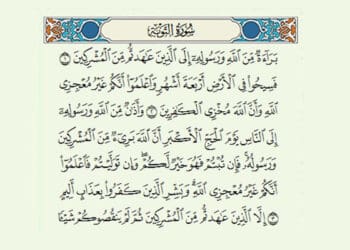 سُورَةُ التَّوْبَةِ
بَرَاءَةٌ مِّنَ اللَّهِ وَرَسُولِهِ إِلَى الَّذِينَ عَاهَدتُّم مِّنَ الْمُشْرِكِينَ ١
فَسِيحُوا فِي الْأَرْضِ أَرْبَعَةَ أَشْهُرٍ وَاعْلَمُوا أَنَّكُمْ غَيْرُ مُعْجِزِي
اللَّهِ وَأَنَّ اللَّهَ مُخْزِي الْكَافِرِينَ ٢ وَأَذَانٌ مِّنَ اللَّهِ وَرَسُولِهِ
إِلَى النَّاسِ يَوْمَ الْحَجِّ الْأَكْبَرِ أَنَّ اللَّهَ بَرِيءٌ مِّنَ الْمُشْرِكِينَ
وَرَسُولُهُ فَإِن تُبْتُمْ فَهُوَ خَيْرٌ لَّكُمْ وَإِن تَوَلَّيْتُمْ فَاعْلَمُوا
أَنَّكُمْ غَيْرُ مُعْجِزِي اللَّهِ وَبَشِّرِ الَّذِينَ كَفَرُوا بِعَذَابٍ أَلِيمٍ
٣ إِلَّا الَّذِينَ عَاهَدتُّم مِّنَ الْمُشْرِكِينَ ثُمَّ لَمْ يَنقُصُوكُمْ شَيْئًا